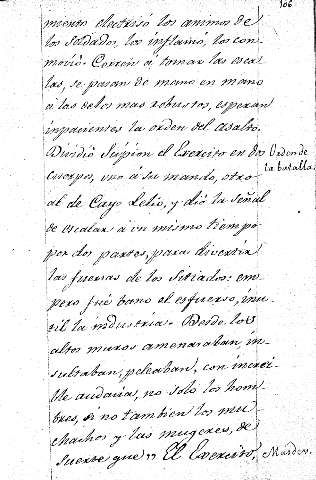 106
mento electrisó los animos de
los soldados, los inflamó, los con-
movió. Corren á tomar las esca-
las, se pasan de mano en mano
á las de los mas robustos, esperan
inpacientes la orden del asalto.
Dividió Scipion el Exercito en dos
Orden de
la batalla.
cuerpos, uno á su mando, otro
al de Cayo Lelio, y dió la señal
de escalar á un mismo tiempo
por dos partes, para divertir
las fuerzas de los sitiados: em-
pero fué vano el esfuerzo, inu-
til la industria. Desde los
altos muros amenazaban, in-
sultaban, peleaban, con increi-
ble audacia, no solo los hom-
bres, si no tambien los mu-
chachos y las mugeres, de
suerte que ,, El Exercito,